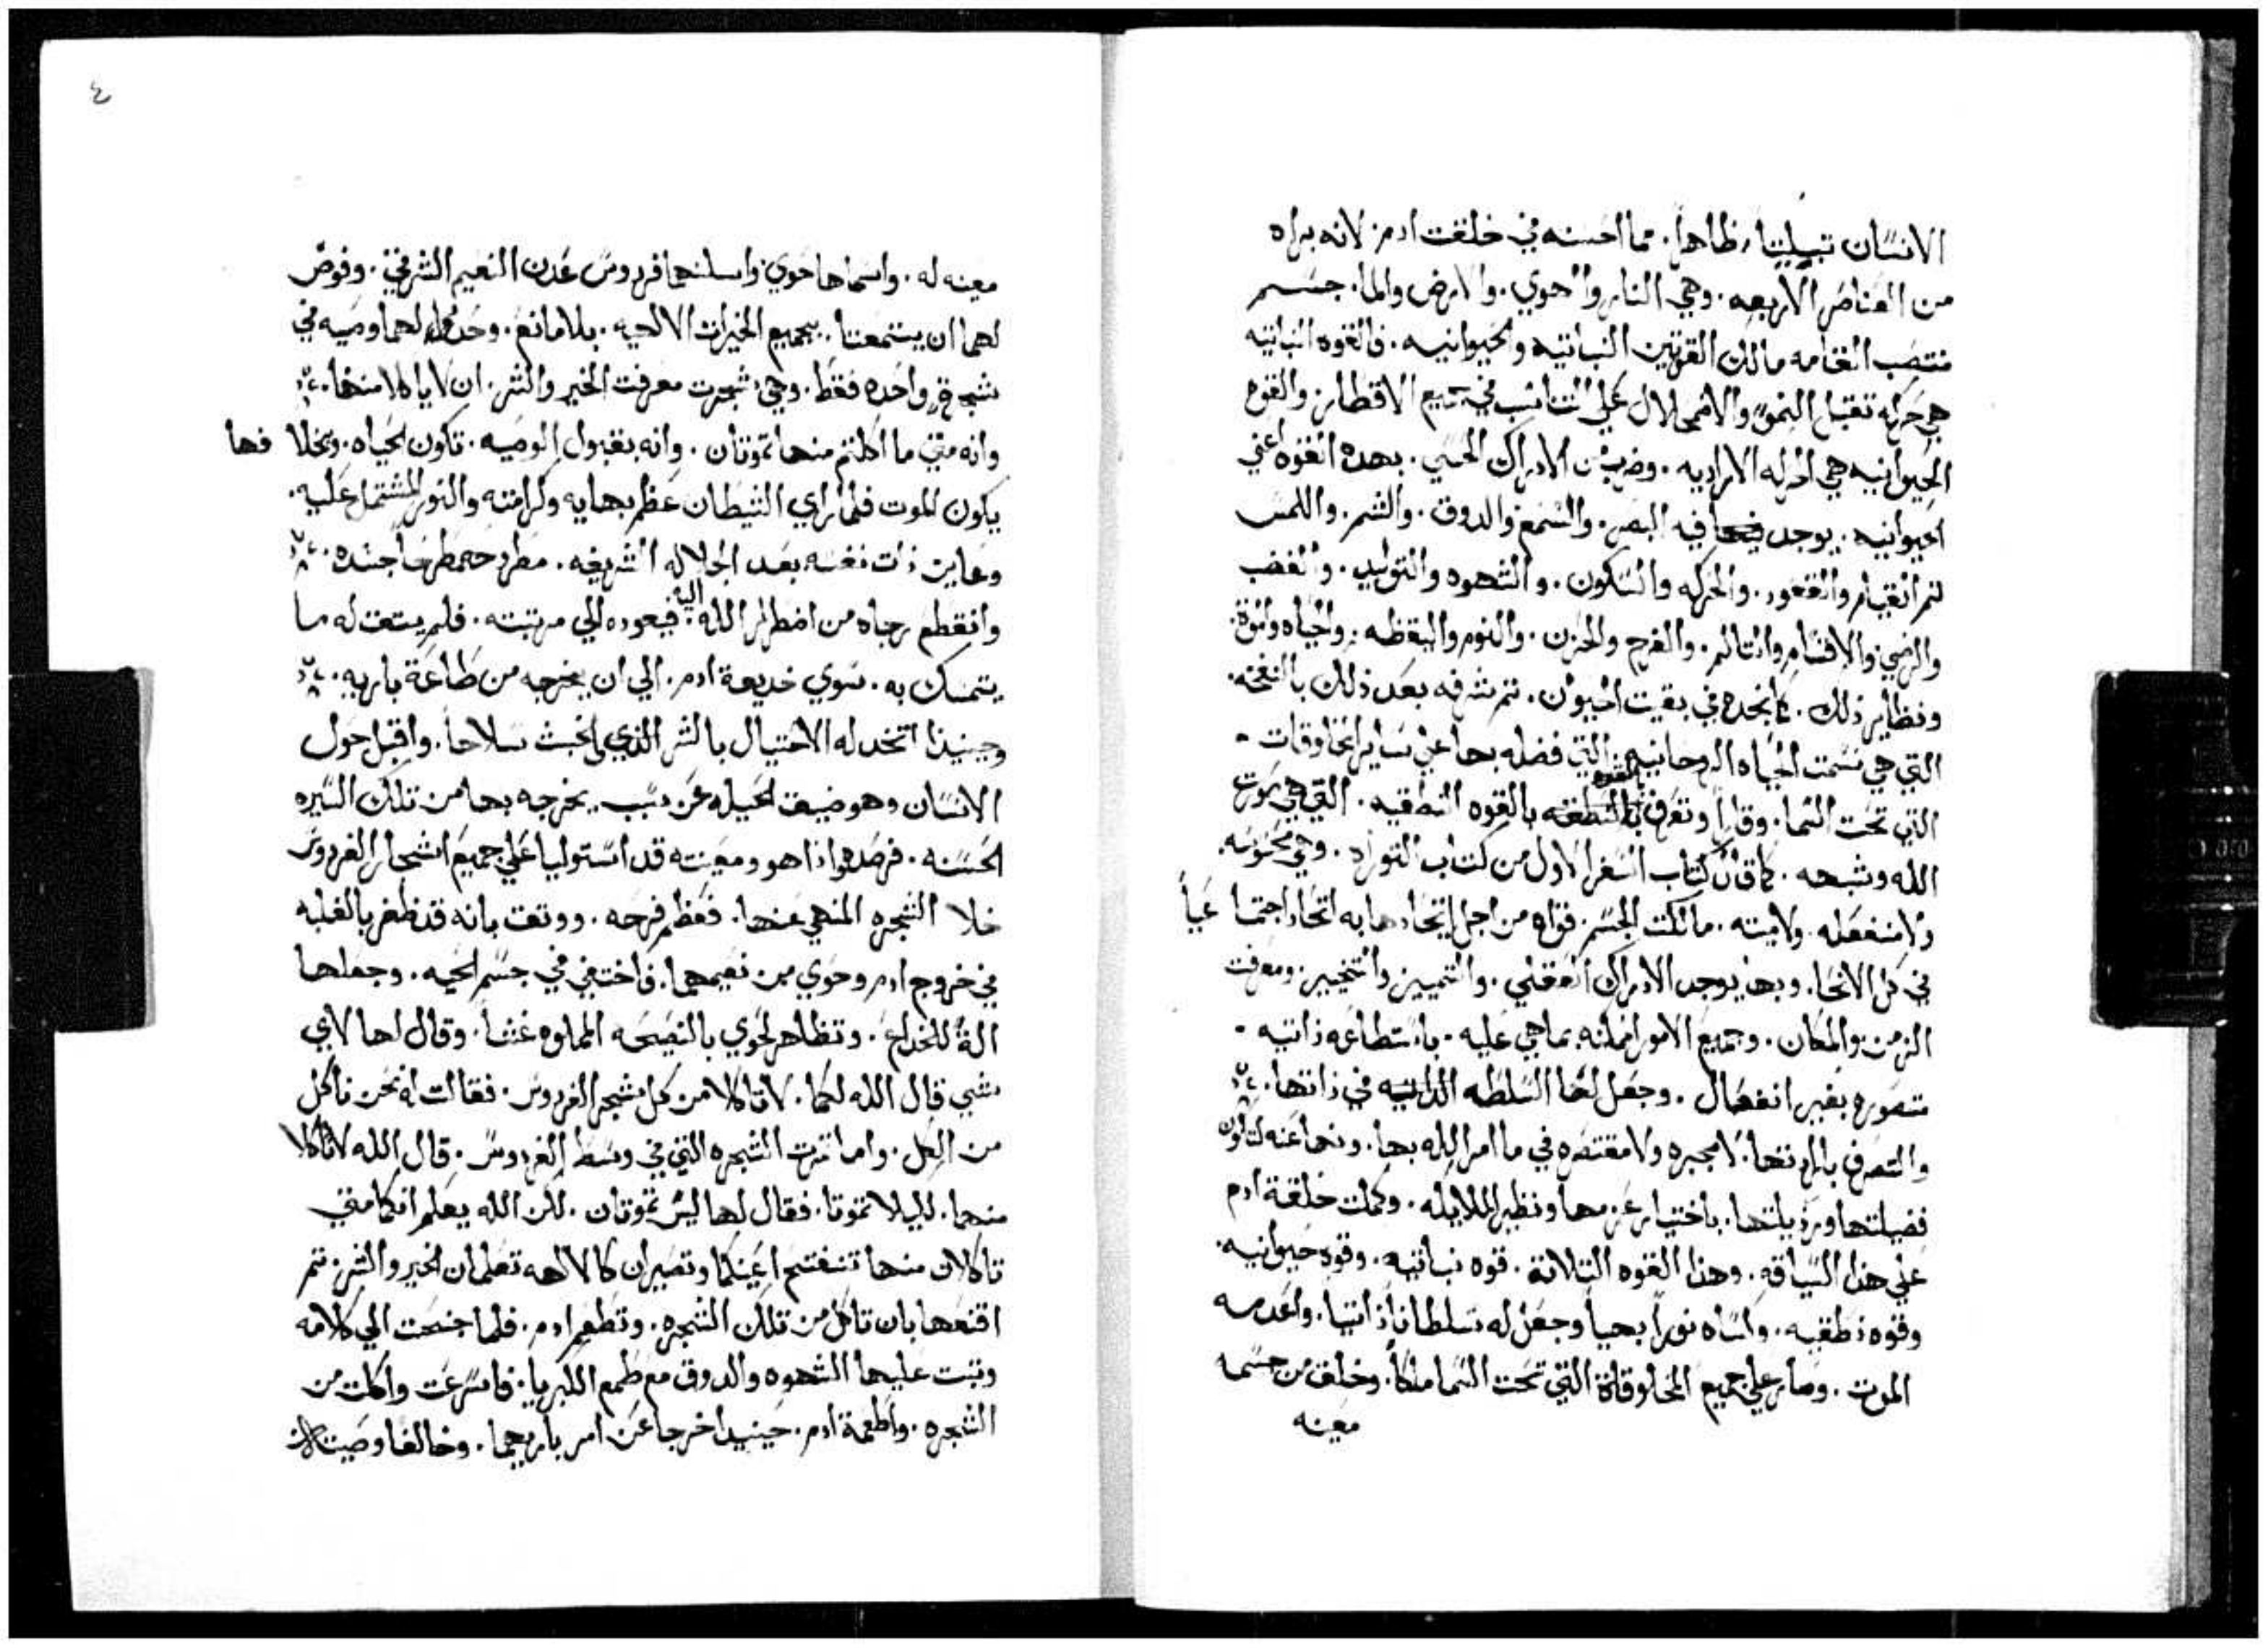 الانسان تبيلبتا، ظاهراً. مما احسنه في خلقت ادم. لانه براه
من العناصر الاربعه. وهي النار والهوي. والارض والما. جسم
منتصب القامه مالك القوتين النباتيه والحيوانيه. فالقوه النباتيه
هي حركه تقبل النمو والاضمحلال علي التناسب في جميع الاقطار. والقوه
الحيوانيه هي الحركه الاراديه. وضرب من الادراك الحسي. بهده القوه اعني
الحيوانيه. يوجد فيه البصر. والسمع والدوق. والشم. واللمس
ثم القيام والقعود. والحركه والسكون. والشهوه والتوليد. والغضب
والرضي والاقسام والتالم. والفرح والحزن. والنوم واليقظه. والحياه والموة.
ونظاير ذلك. كما نجده في بقيت الحيوان. ثم شرفه بعد ذلك بالنفخه.
التي هي نسمت الحياه الروحانيه التي فضله بها علي ساير المخلوقات -
التي تحت السما. وقال وتعرف بالقوه النطقيه. التي هي صورت
الله وشبهه. كما قال كتاب السفر الاول من كتاب التوراه. وهي محسوسه.
ولا منفعله. ولاميته. ما تلكت الجسم. قواه من اجل اتحادها به اتحاد اجتما عياً
في كل الانحا. وبها يوجد الادراك العقلي. والتمييز والتخيير. ومعرفت
الزمن والمكان. وجميع الامور الممكنه بما هي عليه. باستطاعه ذاتيه -
متصوره بغير انفصال. وجعل لها السلطه الداتيه في ذاتها.
والتصرف بارادتها. لا مجبره ولا مقتصره في ما امر الله بها. ونها عنه لتكون
فضيلتها ورذيلتها. باختيار عزمها ونظير الملايكه. وكملت خلقة ادم
علي هذا السياقه. وهذا القوه التلاتة. قوه نباتيه. وقوه حيوانيه.
وقوه نطقيه. واكساه نوراً بهياً وجعل له سلطاناً ذاتياً. واعدمه
الموت. وصار علي جميع المخلوقاة التي تحت السما ملكاً. وخلق من جسمه
معينه
٤
معينه له. واسماها حوي واسكنهما فردوس عدن النعيم الشرقي. وفوض
لهما ان يتمتعتا. بجميع الخيرات الالهيه. بلا مانع. وحدد لهما وصيه في
شجرة واحده فقط. وهي شجرت معرفت الخير والشر. ان لا ياكلا منها.
وانه متي ما اكلتم منها تموتان. وانه بقبول الوصيه. تكون الحياه. وبخلا فها
يكون الموت فلما راي الشيطان عظم بهايه وكرامته والنور المشتمل عليه.
وعاين ذات نفسه بعد الجلاله الشريفه. مطروحه مطرحاً جنده.
وانقطع رجاه من اضطرار الله اليه. فيعوده الي مرتبته. فلم يتفت له ما
يتمسك به. سوي خديعة ادم. الي ان يخرجه من طاعة باريه.
وحينيذا اتخد له الاحتيال بالشر الذي الخبث سلاحاً. واقبل حول
الانسان وهو ضيف الحيله عن سبب يخرجه بها من تلك السيره
الحسنه. فرصدهو اذا هو ومعينته قد استوليا علي جميع اشجار الفردوس
خلا الشجره المنهي عنها. فعظم فرحه. ووتقت بانه قد ظفر بالغلبه
في خروج ادم وحوي من نعيمهما. فاختفي في جسم الحيه. وجعلها
الةً للخداع. وتظاهر لحوي بالنصيحه المملوه غشاً. وقال لها لاي
شي قال الله لكما. لا تاكلا من كل شجر الفردوس. فقالت له نحن ناكل
من الكل. واما تمرت الشجره التي في وسط الفردوس. قال الله لا تاكلا
منهما. ليلا تموتا. فقال لها ليس تموتان. لكن الله يعلم انكما متي
تاكلان منها تنفتح اعينكما وتصيران كالالهه تعلمان الخير والشر. تم
اقنعها بان تاكل من تلك الشجره. وتطعم ادم. فلما جنحت الي كلامه
وتبت عليها الشهوه والدوق مع طمع الكبريا. فاسرعت واكلت من
الشجره. واطعمة ادم. حينيد اخرجا عن امر باريهما. وخالفا وصيته